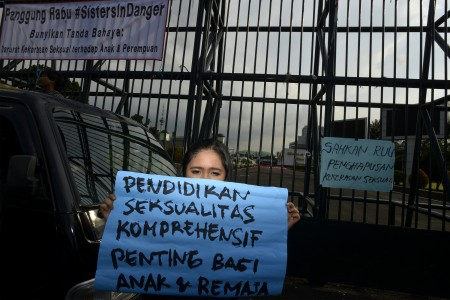 Panggung Rabu #SistersInDanger
Bunyikan Tanda Bahaya:
Darurat Kekerasan Seksual terhadap Anak & Perempuan
SAHKAN RUU
PENGHAPUSAN
KEKERASAN SEKSUAL
PENDIDIKAN
SEKSUALITAS
KOMPREHENSIF
PENTING BAGI
ANAK & REMAJA